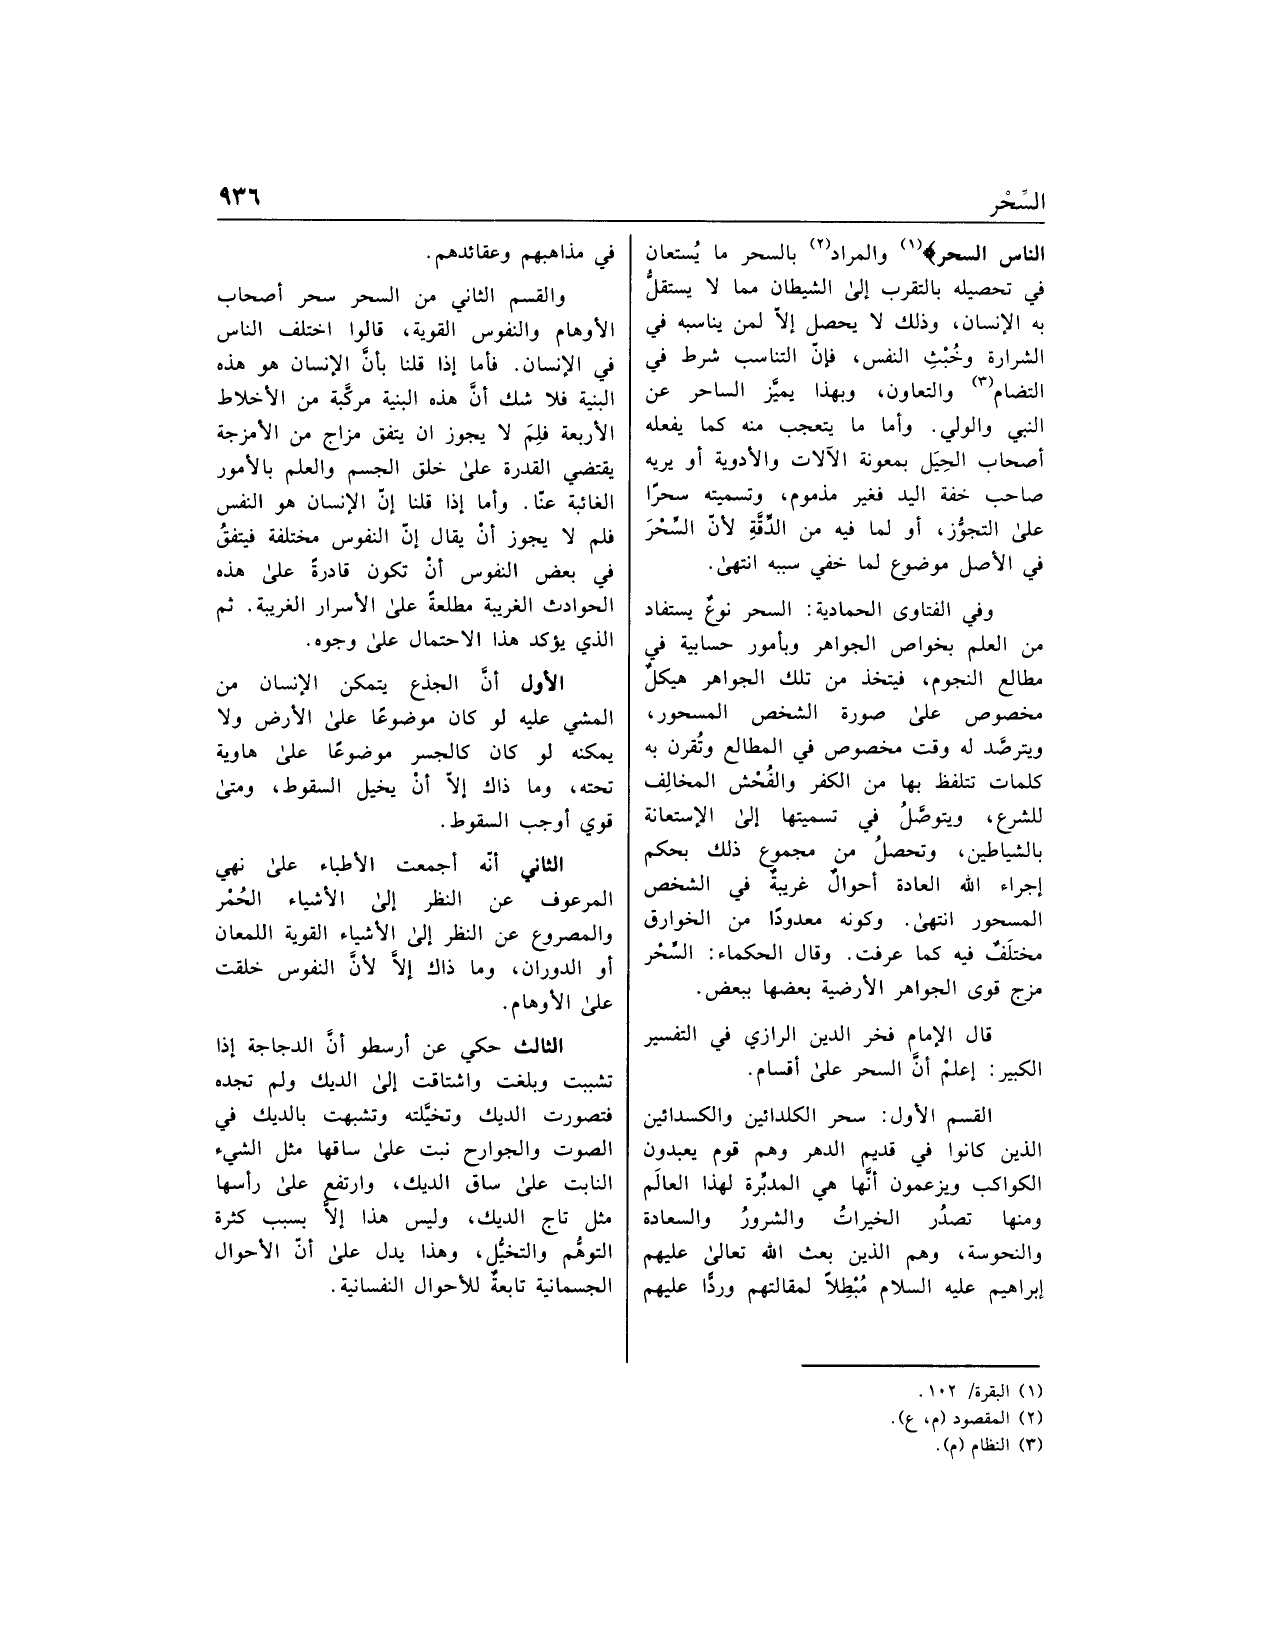 السِّحْر
٩٣٦
الناس السحر﴾(١) والمراد(٢) بالسحر ما يُستعان
في تحصيله بالتقرب إلىٰ الشيطان مما لا يستقلُّ
به الإنسان، وذلك لا يحصل إلاّ لمن يناسبه في
الشرارة وخُبْثِ النفس، فإنّ التناسب شرط في
التضام(٣) والتعاون، وبهذا يميَّز الساحر عن
النبي والولي. وأما ما يتعجب منه كما يفعله
أصحاب الحِيَل بمعونة الآلات والأدوية أو يريه
صاحب خفة اليد فغير مذموم، وتسميته سحرًا
علىٰ التجوُّز، أو لما فيه من الدِّقَّةِ لأنّ السِّحْرَ
في الأصل موضوع لما خفي سببه انتهىٰ.
وفي الفتاوى الحمادية: السحر نوعٌ يستفاد
من العلم بخواص الجواهر وبأمور حسابية في
مطالع النجوم، فيتخذ من تلك الجواهر هيكلٌ
مخصوص علىٰ صورة الشخص المسحور،
ويترصَّد له وقت مخصوص في المطالع وتُقرن به
كلمات تتلفظ بها من الكفر والفُحْش المخالِف
للشرع، ويتوصَّلُ في تسميتها إلىٰ الإستعانة
بالشياطين، وتحصلُ من مجموع ذلك بحكم
إجراء الله العادة أحوالٌ غريبةٌ في الشخص
المسحور انتهىٰ. وكونه معدودًا من الخوارق
مختلَفٌ فيه كما عرفت. وقال الحكماء: السِّحْر
مزج قوى الجواهر الأرضية بعضها ببعض.
قال الإمام فخر الدين الرازي في التفسير
الكبير: إعلمْ أنَّ السحر علىٰ أقسام.
القسم الأول: سحر الكلدائين والكسدائين
الذين كانوا في قديم الدهر وهم قوم يعبدون
الكواكب ويزعمون أنَّها هي المدبِّرة لهذا العالَم
ومنها تصدُر الخيراتُ والشرورُ والسعادة
والنحوسة، وهم الذين بعث الله تعالىٰ عليهم
إبراهيم عليه السلام مُبْطِلاً لمقالتهم وردًّا عليهم
في مذاهبهم وعقائدهم.
والقسم الثاني من السحر سحر أصحاب
الأوهام والنفوس القوية، قالوا اختلف الناس
في الإنسان. فأما إذا قلنا بأنَّ الإنسان هو هذه
البنية فلا شك أنَّ هذه البنية مركَّبة من الأخلاط
الأربعة فلِمَ لا يجوز ان يتفق مزاج من الأمزجة
يقتضي القدرة علىٰ خلق الجسم والعلم بالأمور
الغائبة عنّا. وأما إذا قلنا إنّ الإنسان هو النفس
فلم لا يجوز أنْ يقال إنّ النفوس مختلفة فيتفقُ
في بعض النفوس أنْ تكون قادرةً علىٰ هذه
الحوادث الغريبة مطلعةً علىٰ الأسرار الغريبة. ثم
الذي يؤكد هذا الاحتمال علىٰ وجوه.
الأول أنَّ الجذع يتمكن الإنسان من
المشي عليه لو كان موضوعًا علىٰ الأرض ولا
يمكنه لو كان كالجسر موضوعًا علىٰ هاوية
تحته، وما ذاك إلاّ أنْ يخيل السقوط، ومتىٰ
قوي أوجب السقوط.
الثاني أنّه أجمعت الأطباء علىٰ نهي
المرعوف عن النظر إلىٰ الأشياء الحُمْر
والمصروع عن النظر إلىٰ الأشياء القوية اللمعان
أو الدوران، وما ذاك إلاَّ لأنَّ النفوس خلقت
علىٰ الأوهام.
الثالث حكي عن أرسطو أنَّ الدجاجة إذا
تشببت وبلغت واشتاقت إلىٰ الديك ولم تجده
فتصورت الديك وتخيَّلته وتشبهت بالديك في
الصوت والجوارح نبت علىٰ ساقها مثل الشيء
النابت علىٰ ساق الديك، وارتفع علىٰ رأسها
مثل تاج الديك، وليس هذا إلاَّ بسبب كثرة
التوهُّم والتخيُّل، وهذا يدل علىٰ أنّ الأحوال
الجسمانية تابعةٌ للأحوال النفسانية.
(١) البقرة/ ١٠٢.
(٢) المقصود (م، ع).
(٣) النظام (م).